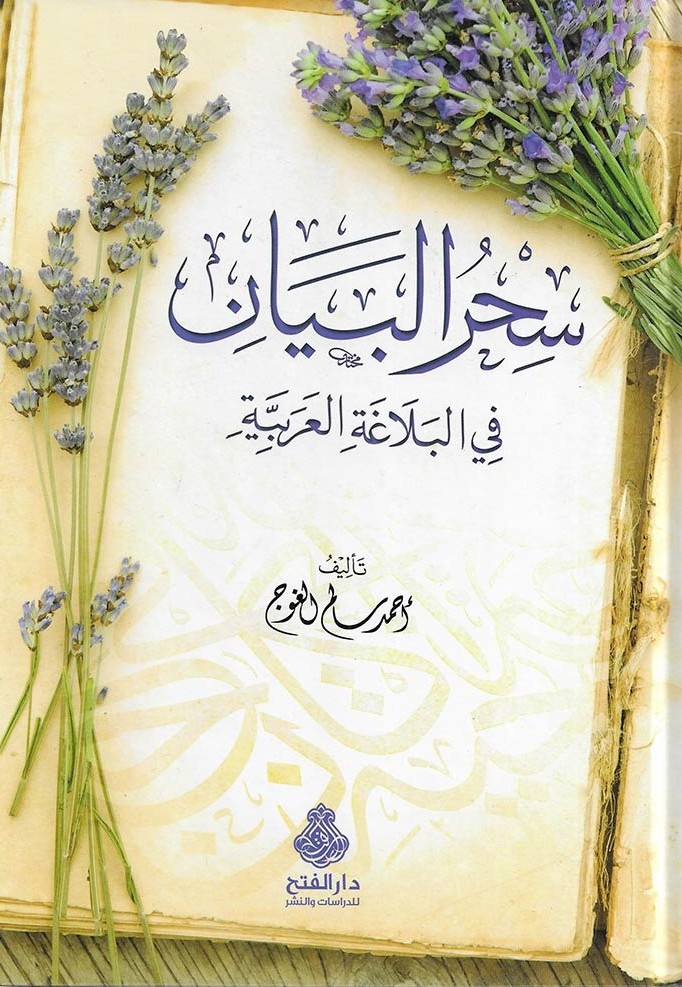 سِحْرُ البَيَانِ
فِي البَلَاغَةِ العَرَبِيَّةِ
تَأْلِيفُ
أحمد سالم الغنوج
دار الفتح
للدراسات والنشر